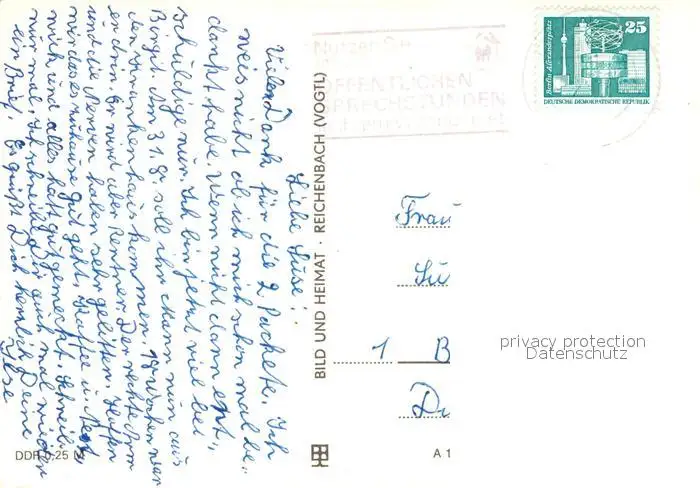 Liebe Luise!
Vielen Dank für die 2 Packete. Ich
weis nicht ob ich mich schon mal be-
dankt habe. Wenn nicht dann ent-
schuldige nur. Ich bin jetzt viel bei
Birgit. Am 31.8. soll ihr Mann nun aus
den Krankenhaus kommen. Wochen war
er drin. Er wird aber Rentner. Der rechte Arm
und die Nerven haben sehr gelitten. Hoffen
wir das es zuhause gut geht. Kaffee u. Rest,
mich und alles hat gut gemerkt. Schreib
nur mal. Ich schreibe Dir auch mal wieder
ein Brief. Es grüßt Dich herzlich Deine
Ilse
BILD UND HEIMAT · REICHENBACH (VOGTL)
DDR 0,25 M
A 1
Nutzen Sie
ÖFFENTLICHEN
SPRECHSTUNDEN
Berlin, Alexanderplatz
25
DEUTSCHE DEMOKRATISCHE REPUBLIK
Frau
Lu
1 B
Di
privacy protection
Datenschutz